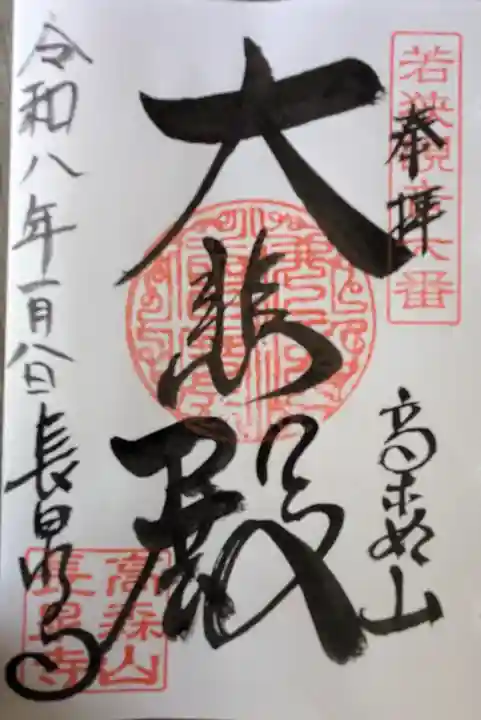 奉拝
若狭観音六番
高森山
大悲殿
令和八年一月八日
長泉寺
高森山
長泉寺